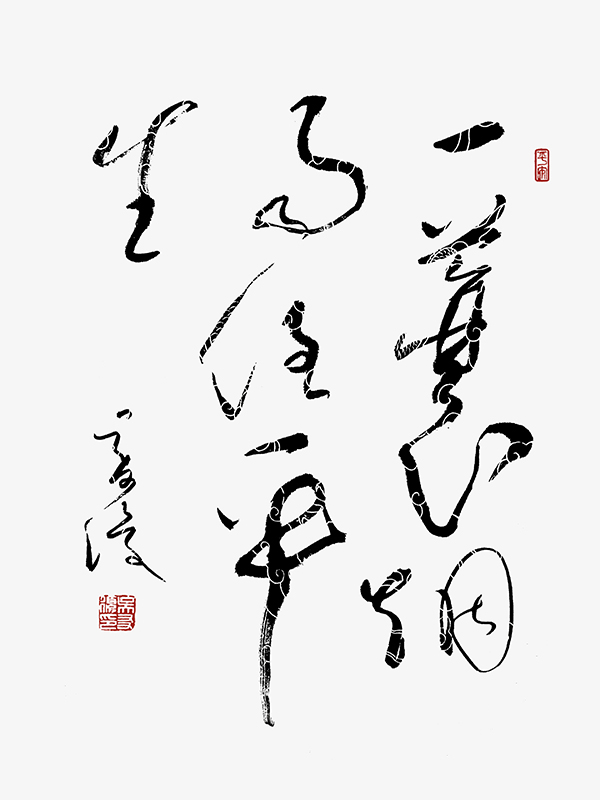 一蓑烟
雨任平
生